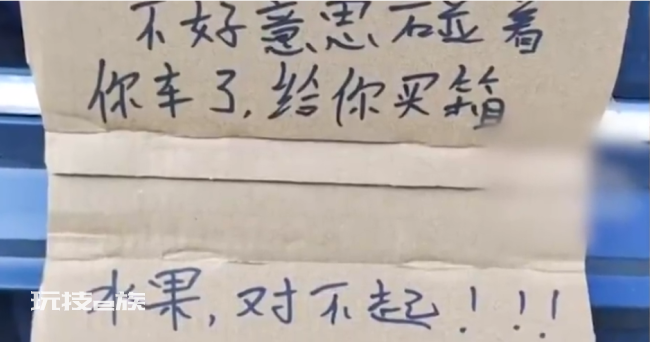 不好意思碰着
你车了,给你买箱
水果,对不起!!!
玩技e族